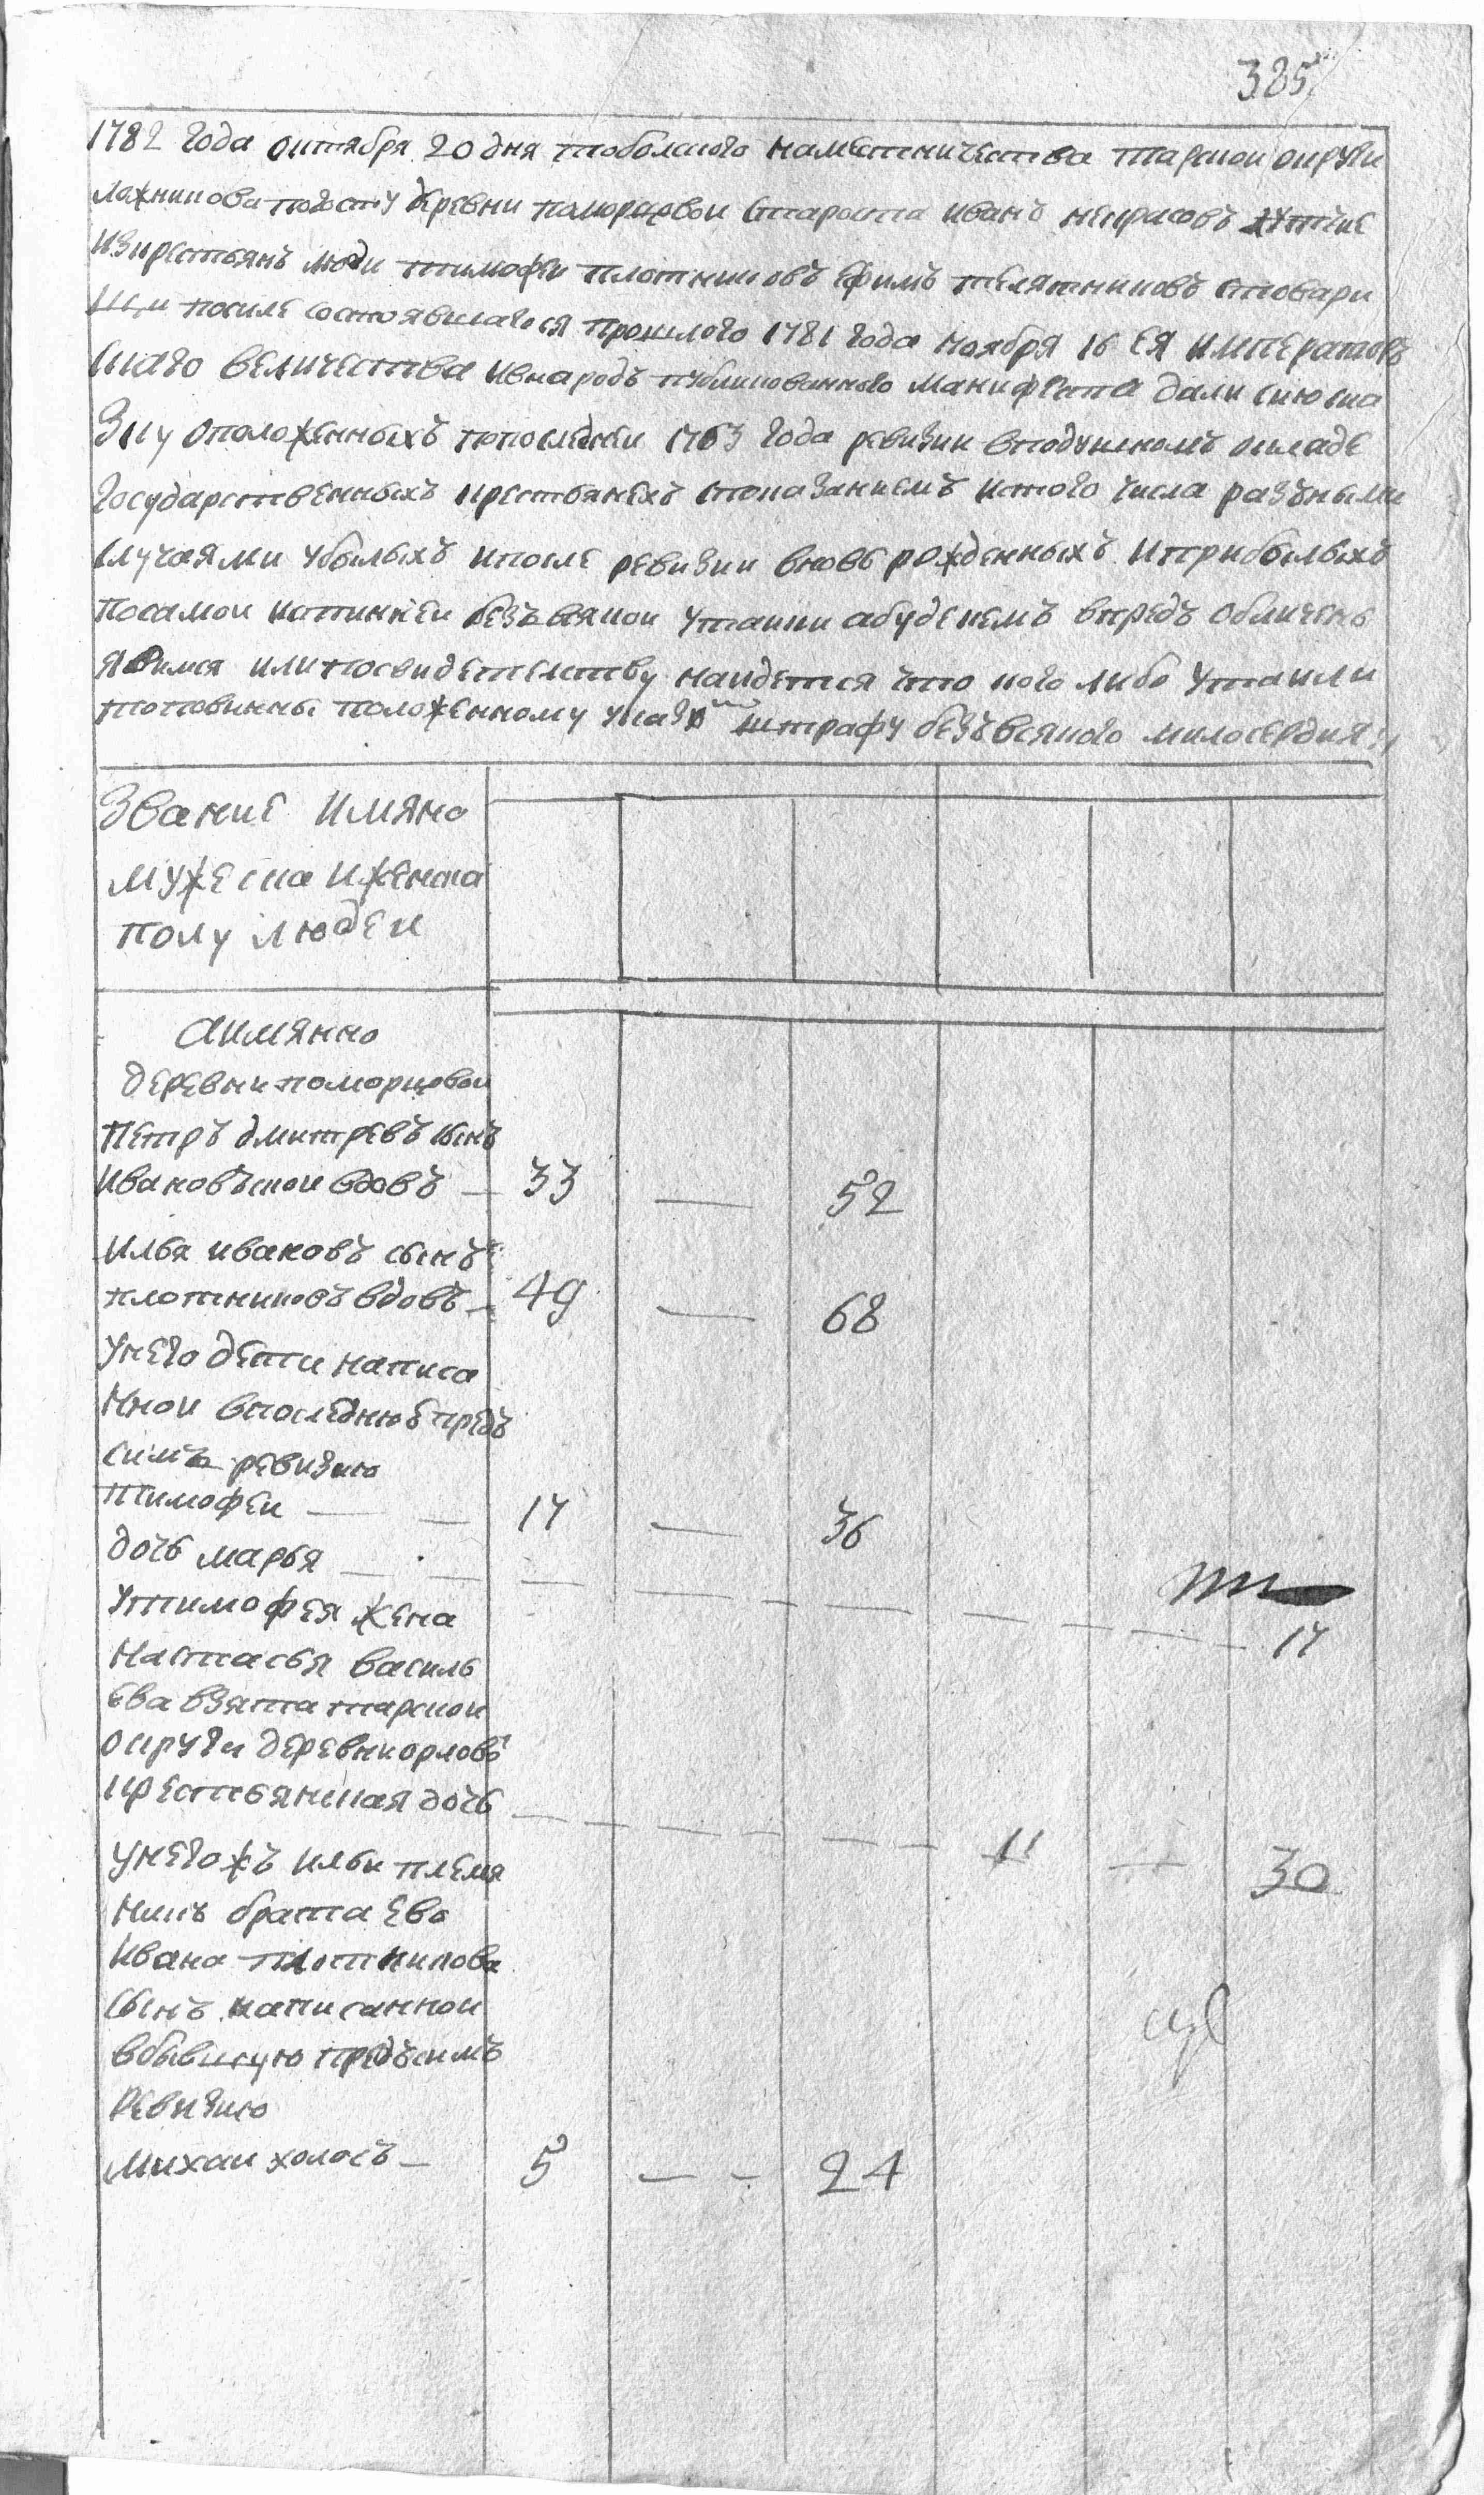 385
1782 года октября 20 дня тоболского наместничества тарской округи
ложникова погосту деревни поморцовои староста иванъ некрасовъ лутчие
изкрестьянъ люди тимофеи плотниковъ ефимъ телятниковъ стовари
щи посиле состоявшагося прошлого 1781 года ноября 16 ея императоръ
скаго величества ивнародъ публикованного манифеста дали сию ска
зку оположенныхъ попоследнеи 1763 года ревизии вподушномъ окладе
государственныхъ крестьянехъ спок��заниемъ истого числа разъными
случаями убылыхъ ипосле ревизии вновь рожденныхъ иприбылыхъ
посамои истиннеи безъвсякои утаики абуде кемъ впредь обличены
явимся или посвидетелству наидется что кого либо утаили
то повинны положенному указо штрафу безъвсякого милосердия
Звание имяно
мужеска иженска
полу людеи
аимянно
деревни поморцовои
Петръ дмитревъ сынъ
Ивановъскои вдовъ — 33 — 52
Илья ивановъ сынъ
плотниковъ вдовъ — 49 — 68
Унего дети написа
нной впоследнюю предъ
симъ ревизию
тимофеи — — 17 — 36
дочь марья — — — — — — — — — 17
Утимофея жена
Настасья василь
ева взята тарскои
округи деревни орловои
крестьянская дочь — — — — — 11 — 30
Унегожъ ильи племя
никъ брата ево
Ивана плотникова
сынъ написанной
вбывшую предъсимъ
ревизию
михаи холосъ — 5 — — 24